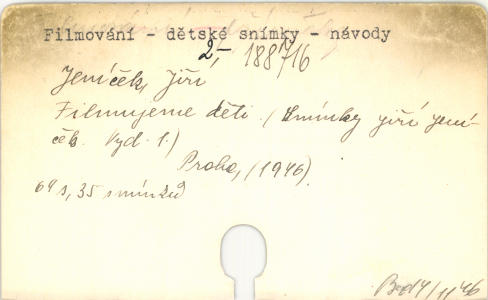 Filmování - dětské snímky - návody
2,- 188716
Jeníček, Jiří
Filmujeme děti. (Snímky Jiří Jení-
ček. Vyd. 1.)
Praha, (1946)
64 s, 35 snímků